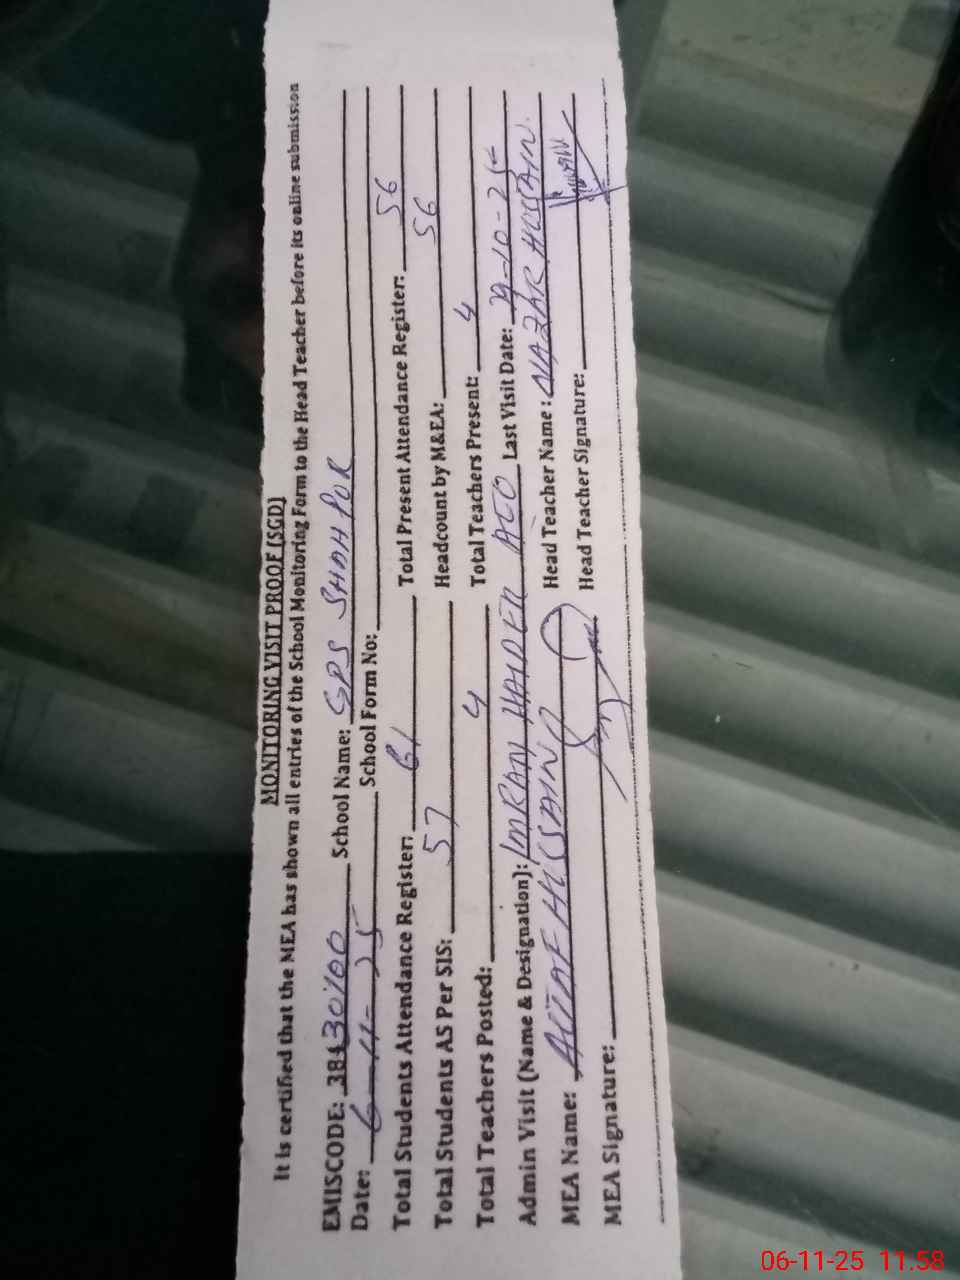 MONITORING VISIT PROOF (SGD)
It is certified that the MEA has shown all entries of the School Monitoring Form to the Head Teacher before its online submission
EMISCODE: 38430100 School Name: GPS SHAHPUR
Date: 6-11-25 School Form No:
Total Students Attendance Register: 61 Total Present Attendance Register: 56
Total Students AS Per SIS: 57 Headcount by M&EA: 56
Total Teachers Posted: 4 Total Teachers Present: 4
Admin Visit (Name & Designation): IMRAN HAIDER AEO Last Visit Date: 29-10-25
MEA Name: ALTAF HUSSAIN Head Teacher Name: NAZAR HUSSAIN
MEA Signature: Head Teacher Signature:
06-11-25 11.58